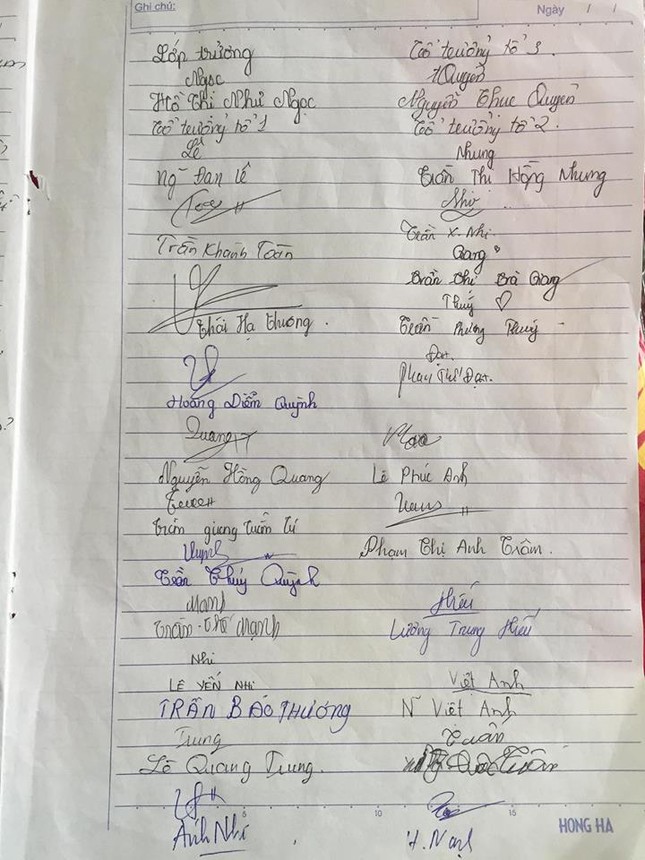 Ghi chú:
Ngày / /
Lớp trưởng
Ngọc
Hồ Thị Như Ngọc
Tổ trưởng tổ 1
Lê
Ng~ Đan Lê
Trần Khánh Toàn
Thái Hạ Thương.
Hoàng Diễm Quỳnh
Quang
Nguyễn Hồng Quang
Trần giang tuấn tú
Trần Thúy Quỳnh
Mạnh
Trần thế mạnh
Nhi
LÊ YẾN NHI
TRẦN BẢO THƯƠNG
Trung
Lê Quang Trung.
Ánh Nhi
Tổ trưởng tổ 3.
Quyền
Nguyễn Thục Quyền
Tổ trưởng tổ 2.
Nhung
Trần Thị Hồng Nhung
Nhi
Trần X. Nhi
Giang
Trần Thị Trà Giang
Thuý ♡
Trần Phương Thuý
Đạt.
Phan Thế Đạt.
Lê Phúc Anh
Phạm Thị Anh Trâm.
Hiếu
Lương Trung Hiếu
Việt Anh
N~ Việt Anh
Tuấn
Quốc Tuấn
5 10 15
HONG HA